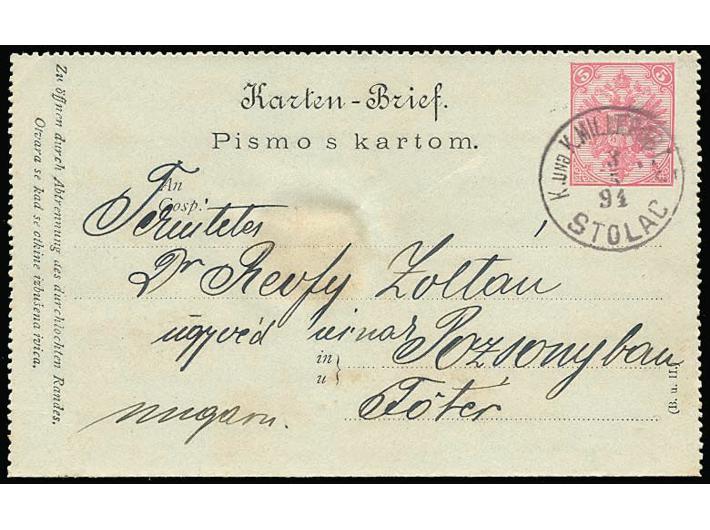 Zu öffnen durch Abtrennung des durchlochten Randes.
Otvara se kad se otkine izbušena ivica.
Karten-Brief.
Pismo s kartom.
5 5
K. UND K. MILIT. POST
3
94
STOLAC
An
Gosp:
Dr Révfy Zoltán
ügyvéd úrnak Pozsonyban
in
u
Főtér
Ungarn.
(B. u. H.)